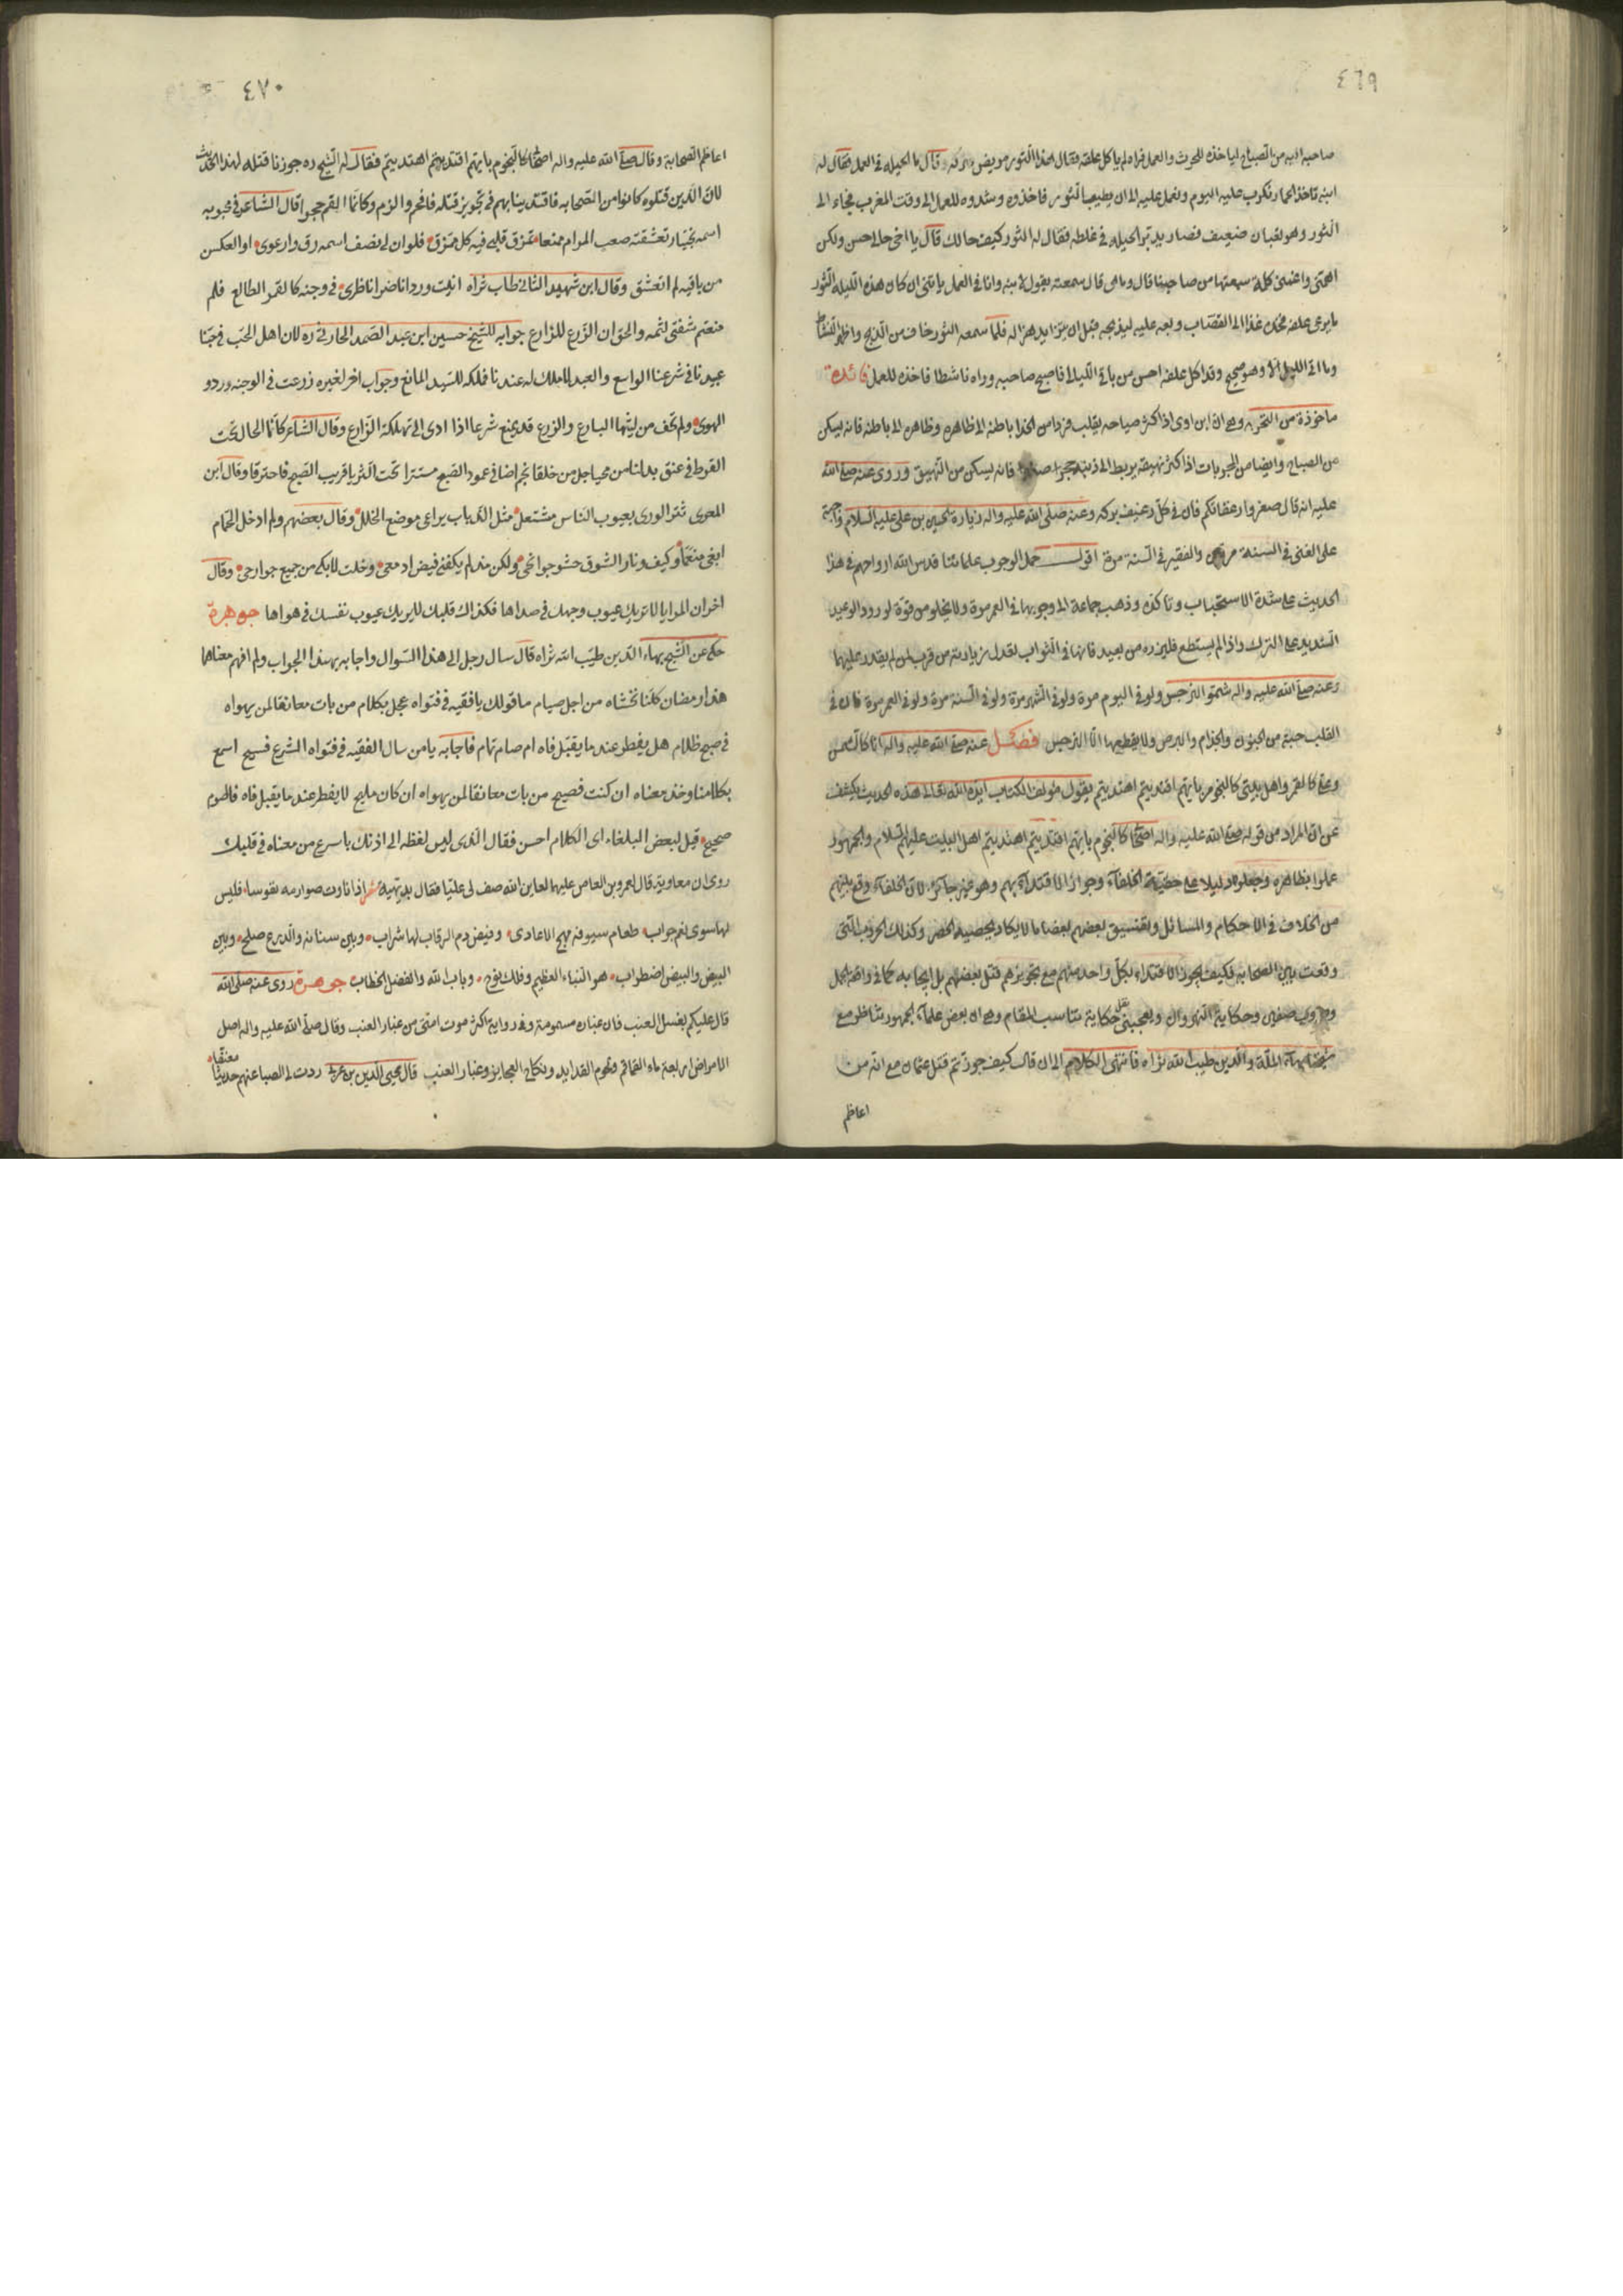 ٤٦٩
صاحبه اليه من الصباح لياخذه للحرث والعمل فراه لم ياكل علفه فقال هذا الثور مريض نتركه قال ما الحيلة في العمل فقال له
ابنه ناخذ الحمار نكرب عليه اليوم ونعمل عليه الى ان يطيب الثور فاخذوه وشدوه للعمل الى وقت المغرب فجاء الى
الثور وهو تعبان ضعيف فصار يدبر الحيلة في غلطه فقال له الثور كيف حالك قال يا اخي حالي حسن ولكن
اهمتني واغمتني كلمة سمعتها من صاحبنا قال وما هي قال سمعته يقول لابنه وانا في العمل يا بني ان كان هذه الليلة الثور
ما يرعى علفه فخذه غدا الى القصاب وبعه عليه ليذبحه قبل ان يتزايد هزاله فلما سمعه الثور خاف من الذبح واظهر النشاط
وما اتى الليل الا وهو صحيح وقد اكل علفه احسن من باقي الليالي فاصبح صاحبه وراه ناشطا فاخذه للعمل فائدة
ماخوذة من التجربة وهي ان ابن اوى اذا كثر صياحه يقلب فردا من الحذا باطنه الى ظاهره وظاهره الى باطنه فانه يسكن
من الصباح وايضا من المجربات اذا كثر نهيقه يربط الى ذنبه حجرا صغيرا فانه يسكن من النهيق وروى عنه صلى الله
عليه انه قال صغروا رغفانكم فان في كل رغيف بركه وعنه صلى الله عليه واله زيارة الحسين بن علي عليه السلام واجبة
على الغني في السنة مرتين والفقير في السنة مرة اقول حمل الوجوب علمائنا قدس الله ارواحهم في هذا
الحديث على شدة الاستحباب وتاكده وذهب جماعة الى وجوبها في العمر مرة ولا يخلو من قوة لورود الوعيد
الشديد على الترك واذا لم يستطع فليزره من بعيد فانها في الثواب تعدل زيارته من قريب لمن لم يقدر عليها
وعنه صلى الله عليه واله شموا النرجس ولو في اليوم مرة ولو في الشهر مرة ولو في السنة مرة ولو في العمر مرة فان في
القلب حبة من الجنون والجذام والبرص ولا يقطعها الا النرجس فصل عنه صلى الله عليه واله انا كالشمس
وعلي كالقمر واهل بيتي كالنجوم بايهم اقتديتم اهتديتم يقول مؤلف الكتاب ايده الله تعالى هذه الحديث يكشف
عن ان المراد من قوله صلى الله عليه واله اصحابي كالنجوم بايهم اقتديتم اهتديتم اهل البيت عليهم السلام والجمهور
عملوا بظاهره وجعلوه دليلا على حقية الخلفاء وجواز الاقتداء بهم وهو غير جائز لان الخلفاء وقع بينهم
من الخلاف في الاحكام والمسائل وتفسيق بعضهم بعضا ما لا يكاد يحصيه الحصر وكذلك الحروب التي
وقعت بين الصحابة فكيف يجوز الاقتداء بكل واحد منهم مع تجويزهم قتل بعضهم بل ايجابه كما في واقعة الجمل
وحروب صفين وحكاية النهروان ويعجبني نقل حكاية تناسب المقام وهي ان بعض علماء الجمهور تناظر مع
شيخنا بهاء الملة والدين طيب الله ثراه فانتهى الكلام الى ان قال كيف جوزتم قتل عثمان مع انه من
اعاظم
٤٧٠
اعاظم الصحابة وقال صلى الله عليه واله اصحابي كالنجوم بايهم اقتديتم اهتديتم فقال له الشيخ ره جوزنا قتله لهذا الحديث
لان الذين قتلوه كانوا من الصحابه فاقتدينا بهم في تجويز قتله فافحم والزم وكانما القم حجرا قال الشاعر في محبوبه
اسمه بختيار تعشقته صعب المرام ممنعا تمزق قلبي فيه كل ممزق فلو ان لي نصف اسمه رق وارعوى او العكس
من باقيه لم اتعشق وقال ابن شهيد الثاني طاب ثراه انبت وردا ناضرا ناظري في وجنة كالقمر الطالع فلم
منعتم شفتي لثمه والحق ان الزرع للزارع جوابه للشيخ حسين ابن عبد الصمد الحارثي ره لان اهل الحب في حبنا
عبيدنا في شرعنا الواسع والعبد لا ملك له عندنا فملكه للسيد المانع وجواب اخر لغيره زرعت في الوجنه ورد و
الهوى ولم تخف من ليثها البارع والزرع قد يمنع شرعا اذا ادى الى تهلكة الزارع وقال الشاعر كانما الحال تحت
القرط في عنق بدا لنا من محيا جل من خلقا نجم اضا في عمود الصبح مستترا تحت الثريا قريب الصبح فاحترقا وقال ابن
المعري شر الورى بعيوب الناس مشتغل مثل الذباب يراعي موضع الخلل وقال بعضهم ولم ادخل الحمام
ابغي منعما وكيف ونار الشوق حشو جوانحي ولكن مذ لم يكفني فيض ادمعي دخلت لابكي من جميع جوارحي وقال
اخر ان المرايا لا تريك عيوب وجهك في صداها فكذاك قلبك لا يريك عيوب نفسك في هواها جوهرة
حكى عن الشيخ بهاء الدين طيب الله ثراه قال سال رجل الى هذا السوال واجابه بهذا الجواب ولم افهم معناها
هذا رمضان كلنا نخشاه من اجل صيام ما قولك يا فقيه في فتواه عجل بكلام من بات معانقا لمن يهواه
في صبح ظلام هل يفطر عند ما يقبل فاه ام صام تمام فاجابه يا من سال الفقيه في فتواه الشرع فسيح اسمع
بكلامنا وخذ معناه ان كنت فصيح من بات معانقا لمن يهواه ان كان مليح لا يفطر عند ما يقبل فاه فالصوم
صحيح قيل لبعض البلغاء اي الكلام احسن فقال الذي ليس لفظه الى اذنك باسرع من معناه في قلبك
روى ان معاوية قال لعمرو بن العاص عليهما لعاين الله صف لي عليا فقال بديهية شعر اذا نادت صوارمه نفوسا فليس
لها سوى نعم جواب طعام سيوفه مهج الاعادي وفيض دم الرقاب لها شراب وبين سنانه والدرع صلح وبين
البيض والبيض اضطراب هو النباء العظيم وفلك نوح وباب الله والفصل الخطاب جوهرة روى عنه صلى الله
قال عليكم بغسل العنب فان غبار مسمومة وفي رواية اكثر موت امتي من غبار العنب وقال صلى الله عليه واله اصل
الامراض اربعة ماء القماقم ولحوم القدايد ونكاح العجايز وغبار العنب قال محيى الدين بن عربي ردت لي الصبا عنهم حديثا
معنقا